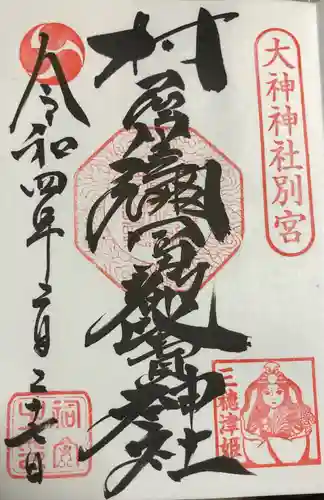 大神神社別宮
村屋坐彌冨都比賣神社
三穂津姫
令和四年二月二十七日